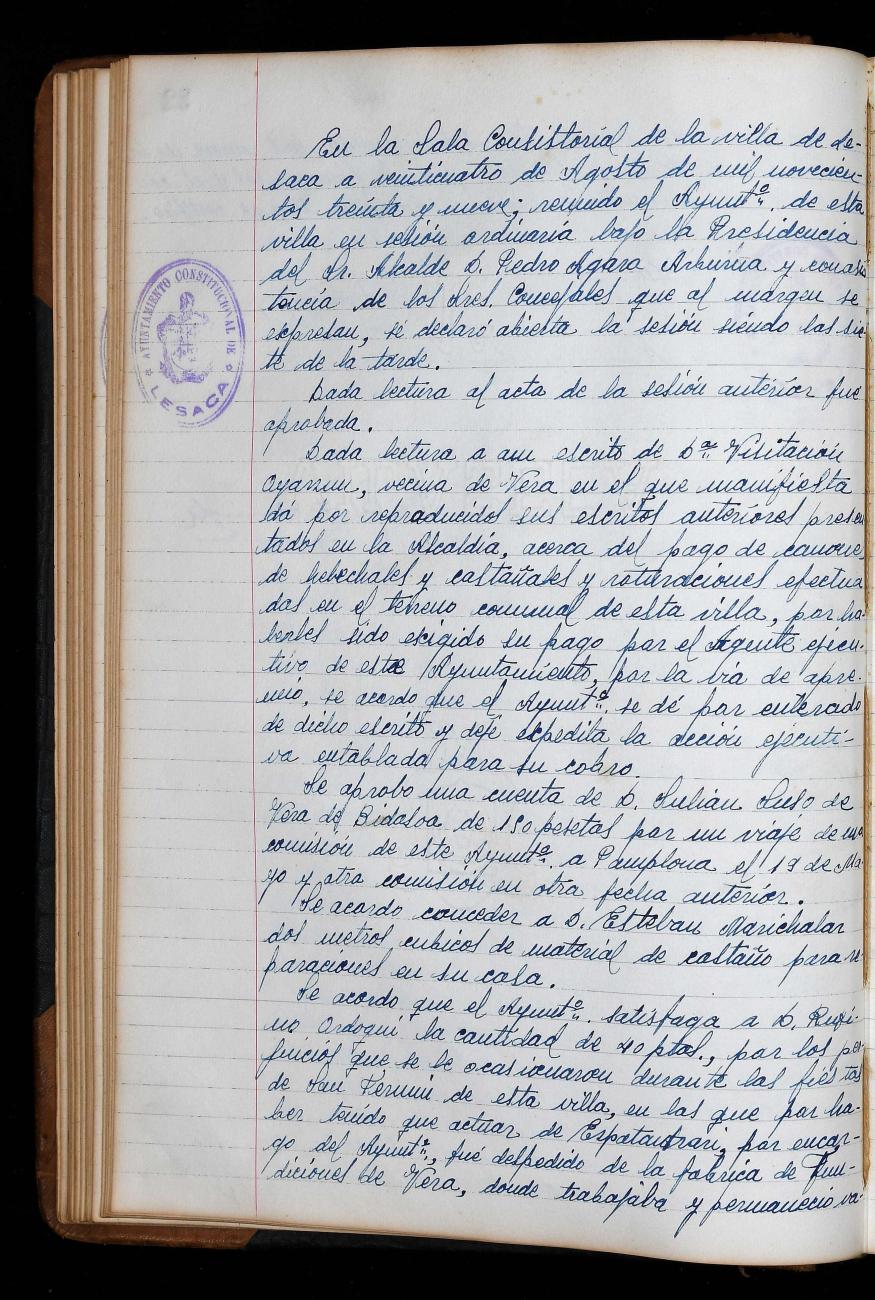 En la Sala Consistorial de la villa de Le-
saca a veinticuatro de Agosto de mil novecien-
tos treinta y nueve; reunido el Ayuntº. de esta
villa en sesión ordinaria bajo la Presidencia
del Sr. Alcalde D. Pedro Agara Arburua y conasis
tencia de los Sres. Concejales que al margen se
expresan, se declaró abierta la sesión siendo las sie
te de la tarde.
Dada lectura al acta de la sesión anterior fue
aprobada.
Dada lectura a am escrito de Dª. Visitación
Oyarzun, vecina de Vera en el que manifiesta
dá por reproducidos sus escritos anteriores presen
tados en la Alcaldía, acerca del pago de canones
de helechales y castañales y roturaciones efectua
das en el terreno comunal de esta villa, por ha-
berles sido exigido su pago por el Agente ejecu-
tivo de este Ayuntamiento, por la vía de apre-
mio, se acordo que el Ayuntº. se dé por enterado
de dicho escrito y deje expedita la acción ejecuti-
va entablada para su cobro.
Se aprobo una cuenta de D. Julián Suso de
Vera de Bidasoa de 150 pesetas por un viaje de una
comisión de este Ayuntº. a Pamplona el 19 de Ma-
yo y otra comisión en otra fecha anterior.
Se acordo conceder a D. Esteban Marichalar
dos metros cubicos de material de castaño para re-
paraciones en su casa.
Se acordo que el Ayuntº. satisfaga a D. Rufi-
no Ordoqui la cantidad de 40 ptas., por los per
juicios que se le ocasionaron durante las fiestas
de San Fermin de esta villa, en las que por ha-
ber tenido que actuar de Ezpatantzari, por encar-
go del Ayuntº., fué despedido de la fabrica de Fun-
diciones de Vera, donde trabajaba y permaneció va-
AYUNTAMIENTO CONSTITUCIONAL DE
LESACA